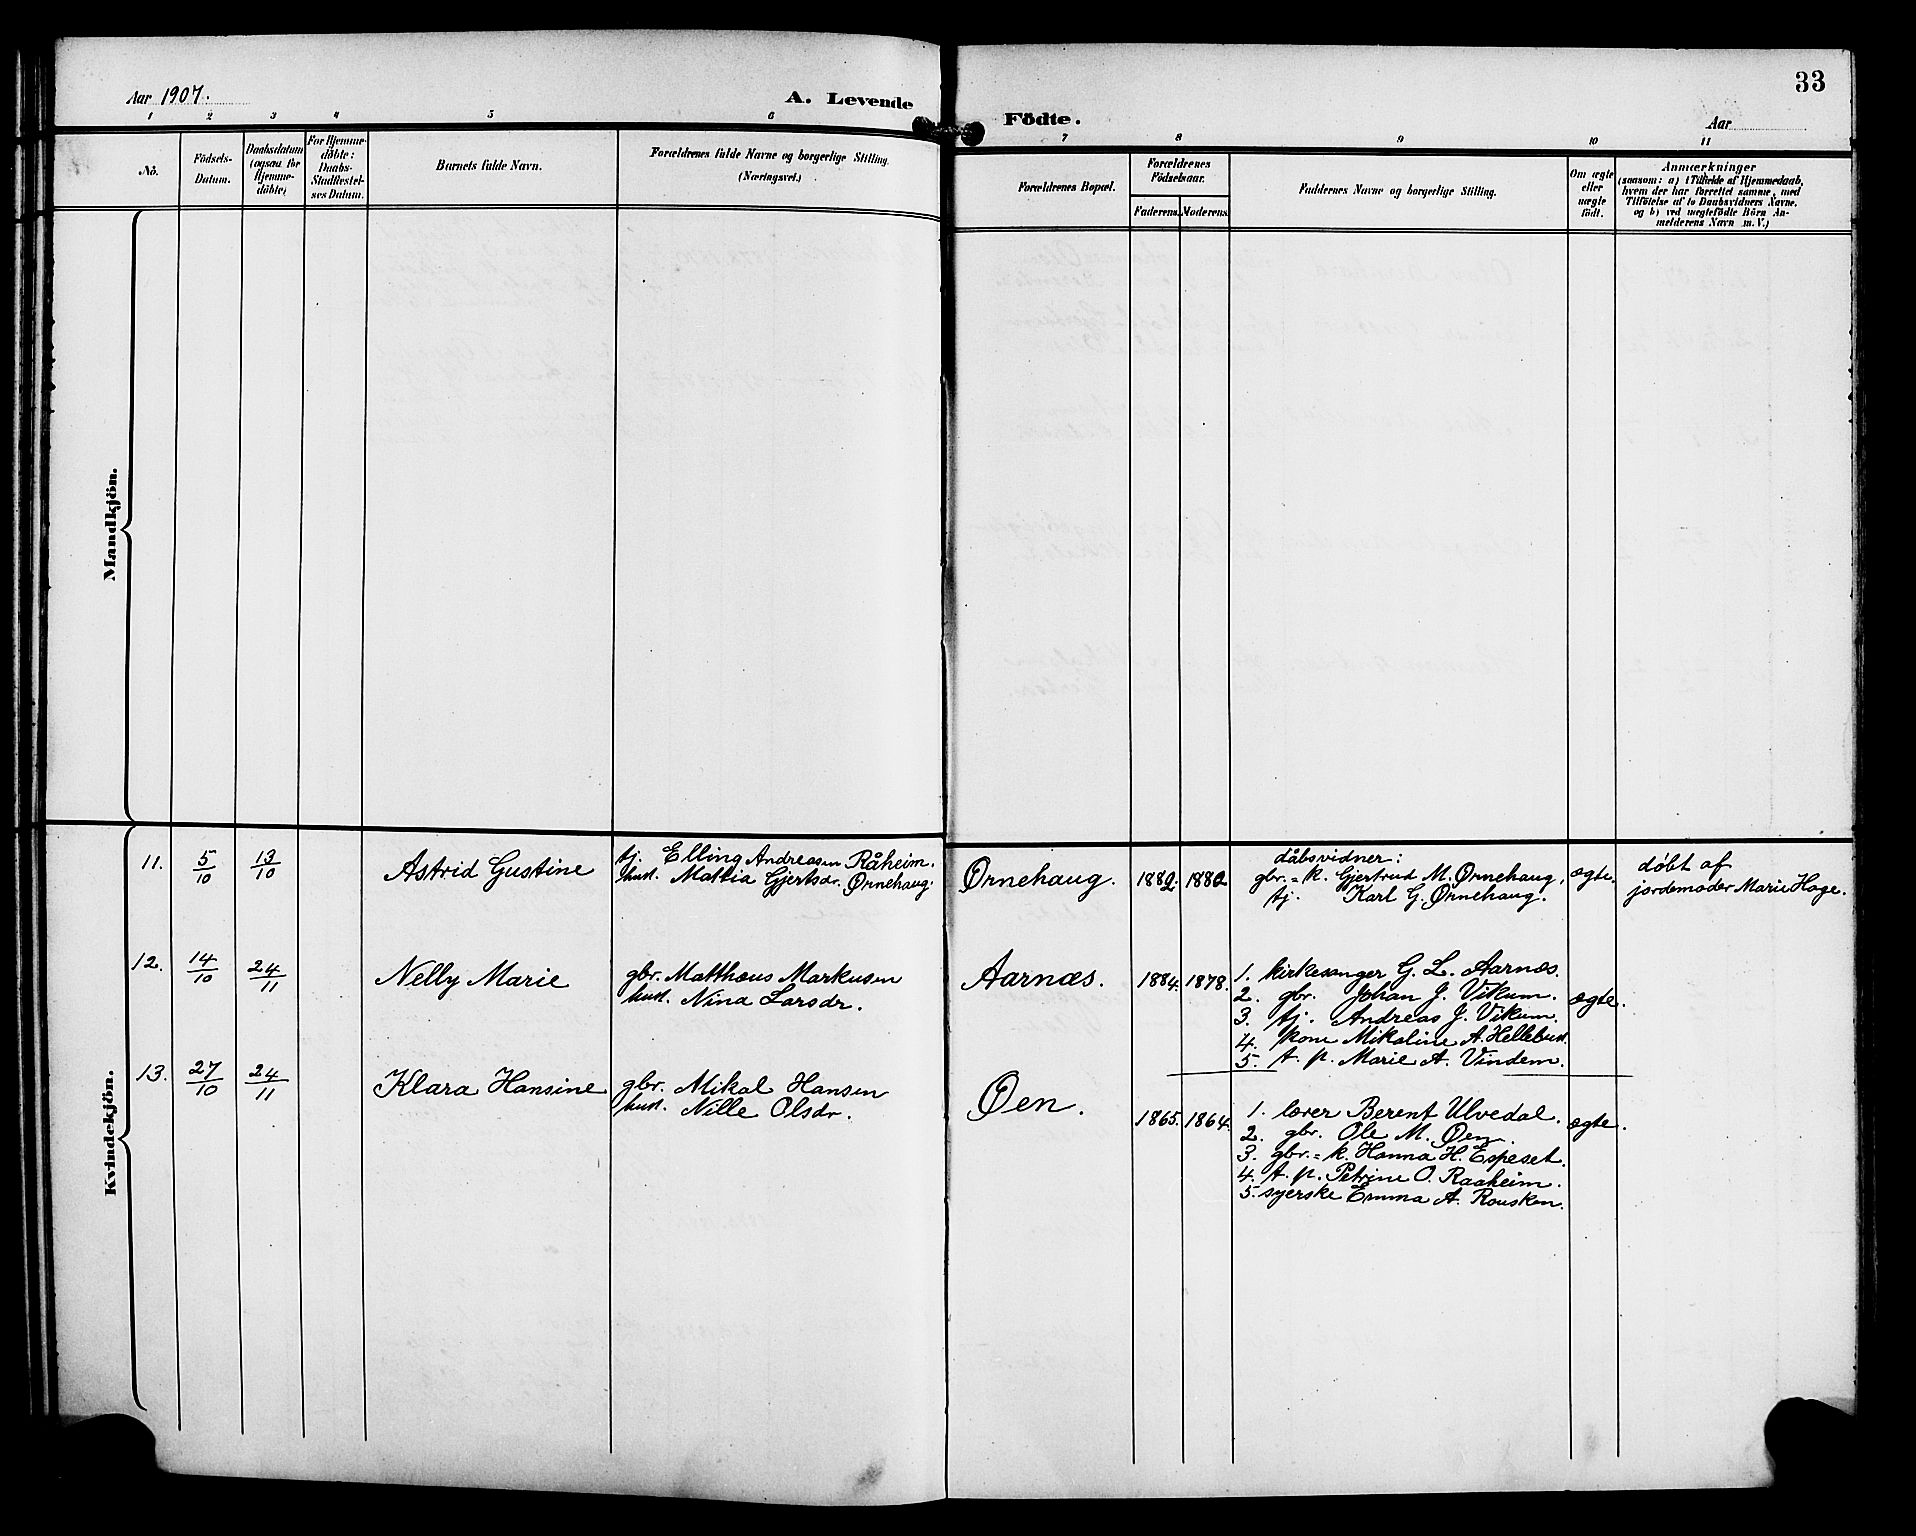 33
Aar 1907.
A. Levende
Födte.
Aar
1 2 3 4 5 6 7 8 9 10 11
No.
Födsels-
Datum.
Daabsdatum
(ogsaa for
Hjemme-
döbte)
For Hjemme-
döbte:
Daabs-
Stadfæstel-
ses Datum.
Barnets fulde Navn.
Forældrenes fulde Navne og borgerlige Stilling.
(Næringsvei.)
Forældrenes Bopæl.
Forældrenes
Födselsaar.
Faderens. Moderens.
Faddernes Navne og borgerlige Stilling.
Om ægte
eller
uægte
födt.
Anmærkninger
(saasom: a) i Tilfælde af Hjemmedaab,
hvem der har forrettet samme, med
Tilföielse af to Daabsvidners Navne,
og b) ved uægtefödte Börn An-
melderens Navn m. V.)
Mandkjön.
Kvindekjön.
11. 5/10 13/10 Astrid Gustine
tj. Elling Andreasen Råheim.
hust. Mattia Gjertsdr. Ørnehaug.
Ørnehaug. 1882. 1882
dåbsvidner:
gbr.=k. Gjertrud M. Ørnehaug,
tj. Karl G. Ørnehaug.
ægte.
døbt af
jordemoder Marie Hage.
12. 14/10 24/11 Nelly Marie
gbr. Matthæus Markusen
hust. Nina Larsdr.
Aarnæs. 1884. 1878.
1. kirkesanger G. L. Aarnæs.
2. gbr. Johan J. Vikum.
3. tj. Andreas J. Vikum.
4. kone Mikaline A. Hellebust.
5. t. p. Marie A. Vindem.
ægte.
13. 27/10 24/11 Klara Hansine
gbr. Mikal Hansen
hust. Nille Olsdr.
Øen. 1865. 1864.
1. lærer Berent Ulvedal.
2. gbr. Ole M. Øen.
3. gbr.=k. Hanna H. Espeset.
4. t. p. Petrine O. Raaheim.
5. syerske Emma A. Rousken.
ægte.